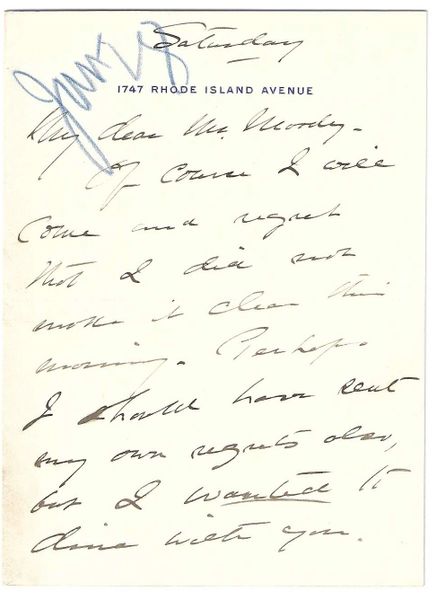 Saturday
Jan 28
1747 RHODE ISLAND AVENUE
My dear Mr. Moody -
Of course I will
come and regret
that I did not
make it clear this
morning. Perhaps
I should have sent
my own regrets also,
but I wanted to
dine with you.